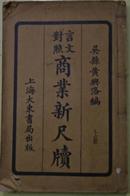 吳縣黃興洛編
言文對照
商業新尺牘
上海大東書局出版